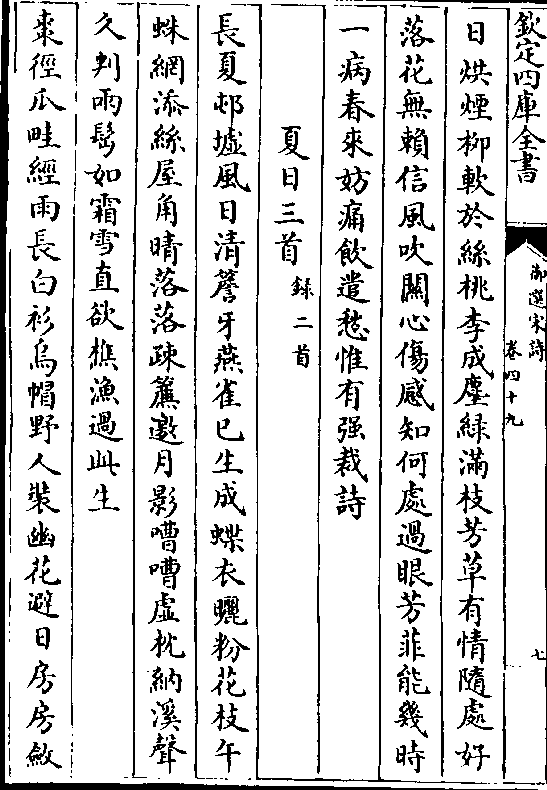 欽定四庫全書
御選宋詩
卷四十九
七
日烘煙柳軟於絲桃李成塵緑滿枝芳草有情隨處好
落花無賴信風吹關心傷感知何處過眼芳菲能幾時
一病春來妨痛飲遣愁惟有强裁詩
夏日三首録二首
長夏邨墟風日清簷牙燕雀已生成蝶衣曬粉花枝午
蛛網添絲屋角晴落落疎簾邀月影嘈嘈虛枕納溪聲
久判兩髩如霜雪直欲樵漁過此生
棗徑瓜畦經雨長白衫烏帽野人裝幽花避日房房斂